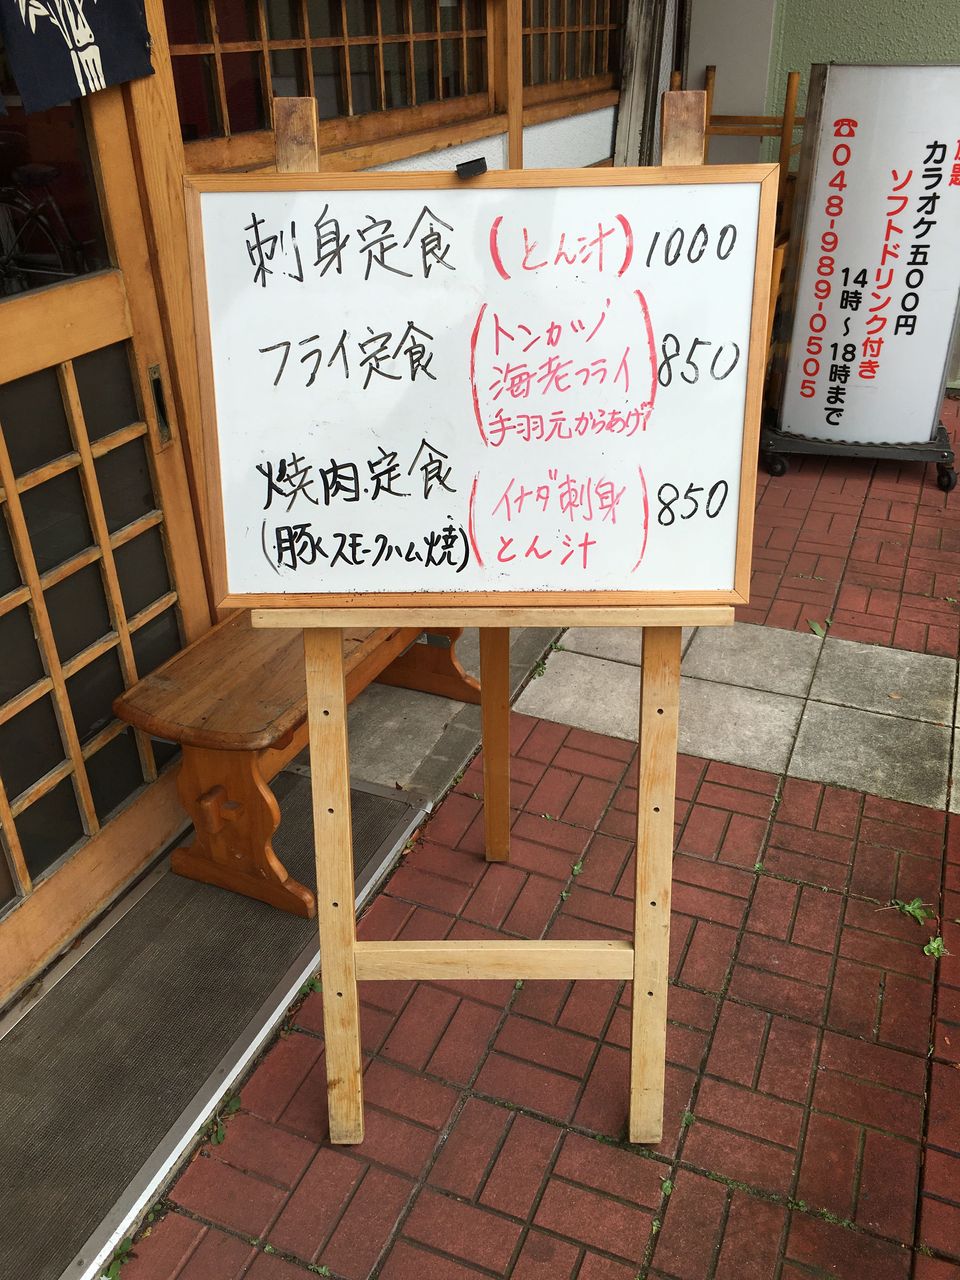 刺身定食 (とん汁) 1000
フライ定食 (トンカツ 850
海老フライ
手羽元からあげ)
焼肉定食 (イナダ刺身 850
(豚スモークハム焼) とん汁)
放題
カラオケ五〇〇円
ソフトドリンク付き
14時～18時まで
☎048-989-0505